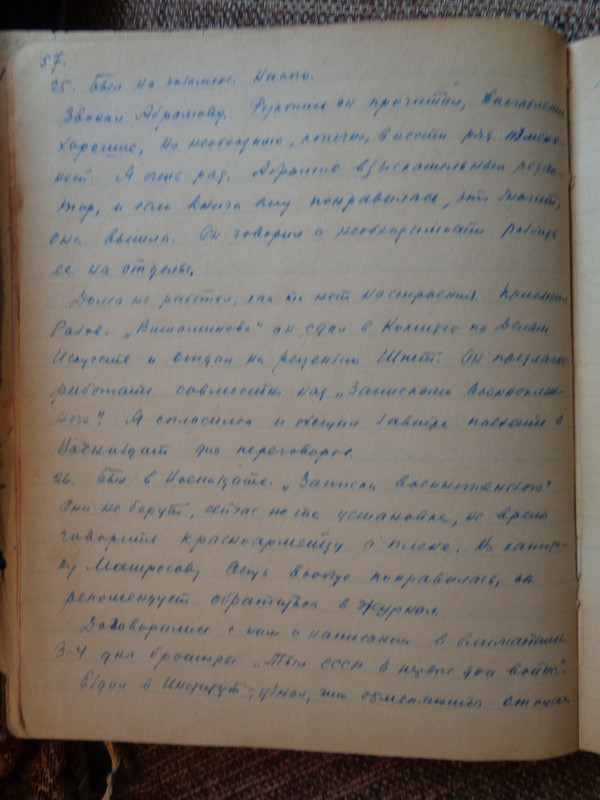 57.
25. Был на экзамене. Насто.
Звонил Абрамову. Рукопись он прочитал, впечатление
хорошее, но необходимо, конечно, внести ряд измене-
ний. Я очень рад. Абрамов взыскательный редак-
тор, и если книга ему понравилась, это значит,
она вышла. Он говорил о необходимости разбить
ее на отделы.
Дома не работал, как то нет настроения. Приезжал
Рабов. „Витаминова" он сдал в Комитет по Делам
Искусств и отдал на рецензии Шпет. Он предлагает
работать совместно над „Записками военноплен-
ного". Я согласился и обещал завтра поехать в
Воениздат для переговоров.
26. Был в Воениздате. „Записки военнопленного"
они не берут, сейчас не та установка, не время
говорить красноармейцу о плене. Но капи-
ну Матросову вещь вообще понравилась, он
рекомендует обратиться в журнал.
Договорились с ним о написании в ближайшие
3-4 дня брошюры „Тыл СССР в первые дни войны".
Ездил в Институт, узнал, что отменяются отпуска